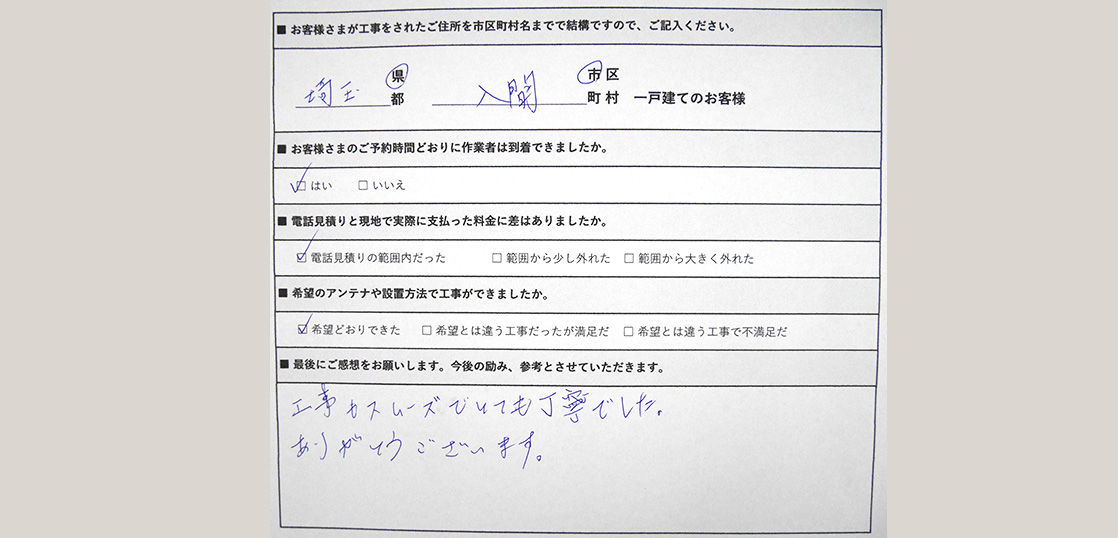 ■ お客様さまが工事をされたご住所を市区町村名までで結構ですので、ご記入ください。
埼玉 県 入間 市 区
都 町 村 一戸建てのお客様
■ お客様さまのご予約時間どおりに作業者は到着できましたか。
☑ はい □ いいえ
■ 電話見積りと現地で実際に支払った料金に差はありましたか。
☑ 電話見積りの範囲内だった □ 範囲から少し外れた □ 範囲から大きく外れた
■ 希望のアンテナや設置方法で工事ができましたか。
☑ 希望どおりできた □ 希望とは違う工事だったが満足だ □ 希望とは違う工事で不満足だ
■ 最後にご感想をお願いします。今後の励み、参考とさせていただきます。
工事もスムーズでとても丁寧でした。
ありがとうございます。